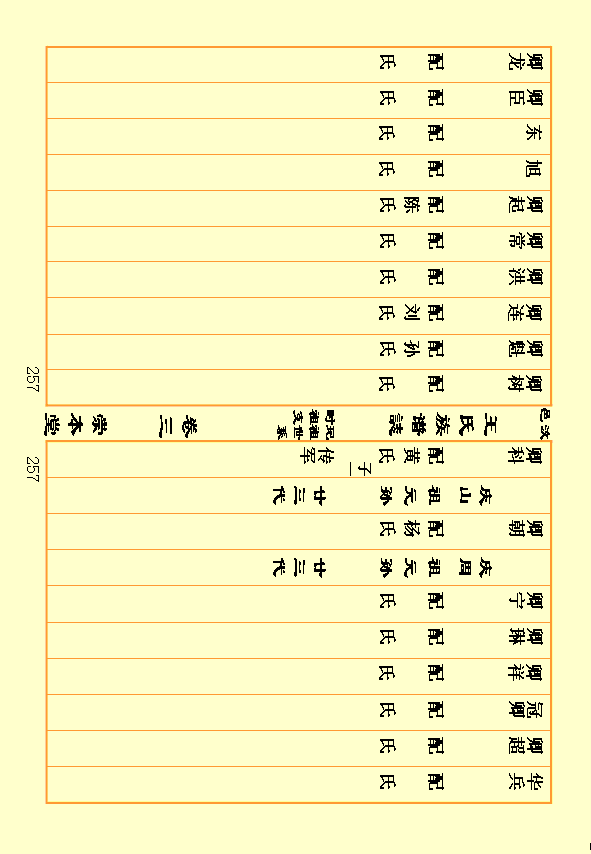 华兵 配 氏
卿超 配 氏
冠卿 配 氏
卿祥 配 氏
卿琳 配 氏
卿宁 配 氏
庆周祖元孙廿三代
卿朝 配杨氏
庆山祖元孙廿三代
卿科 配黄氏 子一 传军
257
汶邑 王氏族譜誌 祖世系 时祖支 卷三 崇本堂
卿树 配 氏
卿魁 配孙氏
卿连 配刘氏
卿洪 配 氏
卿常 配 氏
卿起 配陈氏
旭 配 氏
东 配 氏
卿臣 配 氏
卿龙 配 氏
257